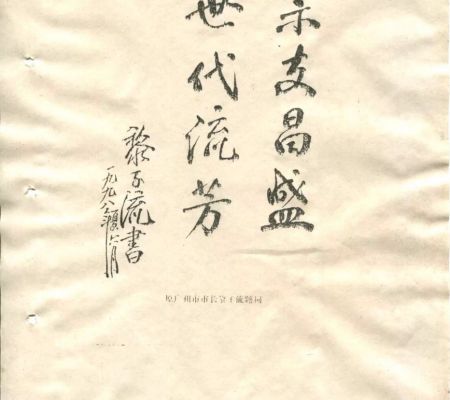 宗支昌盛
世代流芳
黎子流書
一九九八 六月
原广州市市长黎子流题词